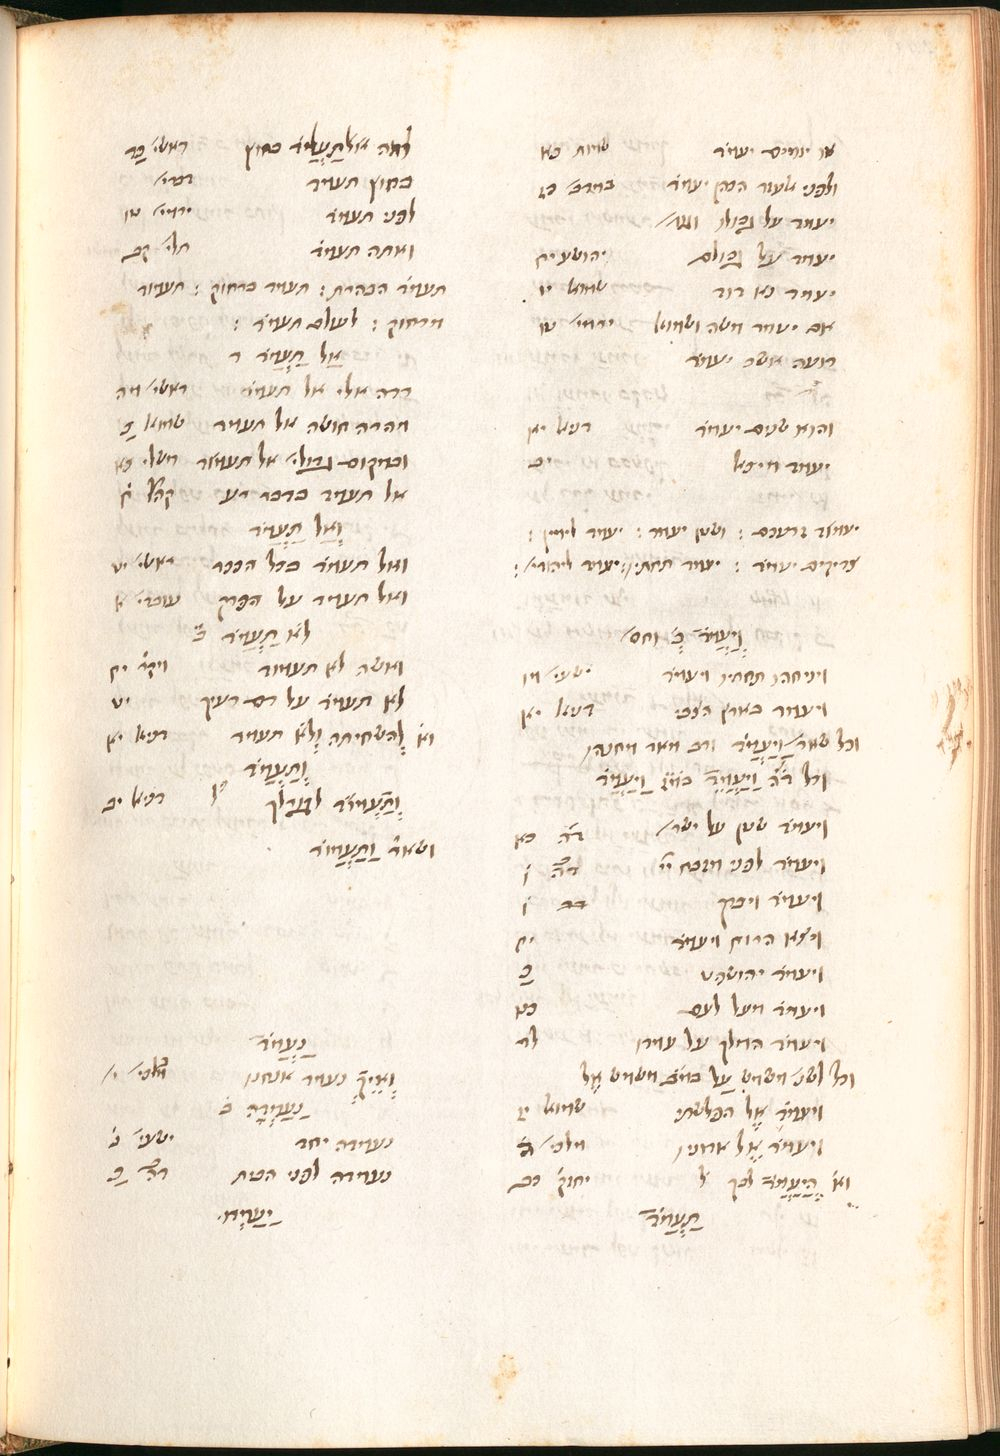 או יומים יעמד שמות כא
ולפני אלעזר הכהן יעמד במדב' כז
יעמד על גבולו
יעמד על גבולם יהושע יח
יעמד נא דוד שמוא' יו
אם יעמד משה ושמוא' ירמי' טו
רועה אשר יעמד
והוא שנים יעמד דניא' יא
יעמד מיכא' יב
יעמד ברעבם : ושטן יעמד : יעמד לימין :
צדיקים יעמד : יעמד תחתיו : יעמד ליהודי' :
וַיַעֲמֹד
ויניחהו תחתיו ויעמד ישעי' מו
ויעמד בארץ הצבי דניא' יא
וכל שאר וַיַעֲמֹד
וכל ד'ה' וַיַעֲמֵד וַיַעֲמֹד
ויעמד שטן על ישר' ד'ה' כא
ויעמד לפני מזבח יי' ד'ה' ו
ויעמד ויברך ו
ויצא הרוח ויעמד יח
ויעמד יהושפט כ
ויעמד מעל לעם כד
ויעמד המלך על עמדו לד
וכל לשני
ויעמד אֶל הפלשתי שמוא' יז
ויעמד אֶל אדוניו מלכי' ה
וא' הֲיַעֲמֹד לבך ל' יחזק' כב
תַעֲמֹד
למה אל תַעֲמֹד בחוץ ראשי' כד
בחוץ תעמד דברי'
לפני תעמד ירמי' טו
ואתה תעמד תלי' קב
תעמד הבהרת : תעמד ברחוק : תעמוד
מרחוק : לעולם תעמד :
אַל תַעֲמֹד ד
רדה אלי אל תעמד ראשי' מה
מהרה חושה אל תעמד שמוא' כ
ובמקום גדולי' אל תעמוד משלי כה
אל תעמד בדבר רע קהל' ח
וְאַל תַעֲמֹד
ואל תעמד בכל הככר ראשי' יט
ואל תעמד על הפרק עובדי' א
לֹא תַעֲמֹד ב'
ואשה לא תעמוד ויקר' יח
לא תעמד על דם רעך יט
וא' לְהשחיתה וְלֹא תעמד דניא' יא
וְתַעֲמֹד
וְתַעֲמוֹד לגורלך ל' דניא' יב
ושאר' וַתַעֲמוֹד
נַעֲמֹד
וְאֵיךְ נעמד אנחנו מלכי' י
נַעַמְדָה ב'
נעמדה יחד ישעי' נ
נעמדה לפני הבית ד'ה' כ